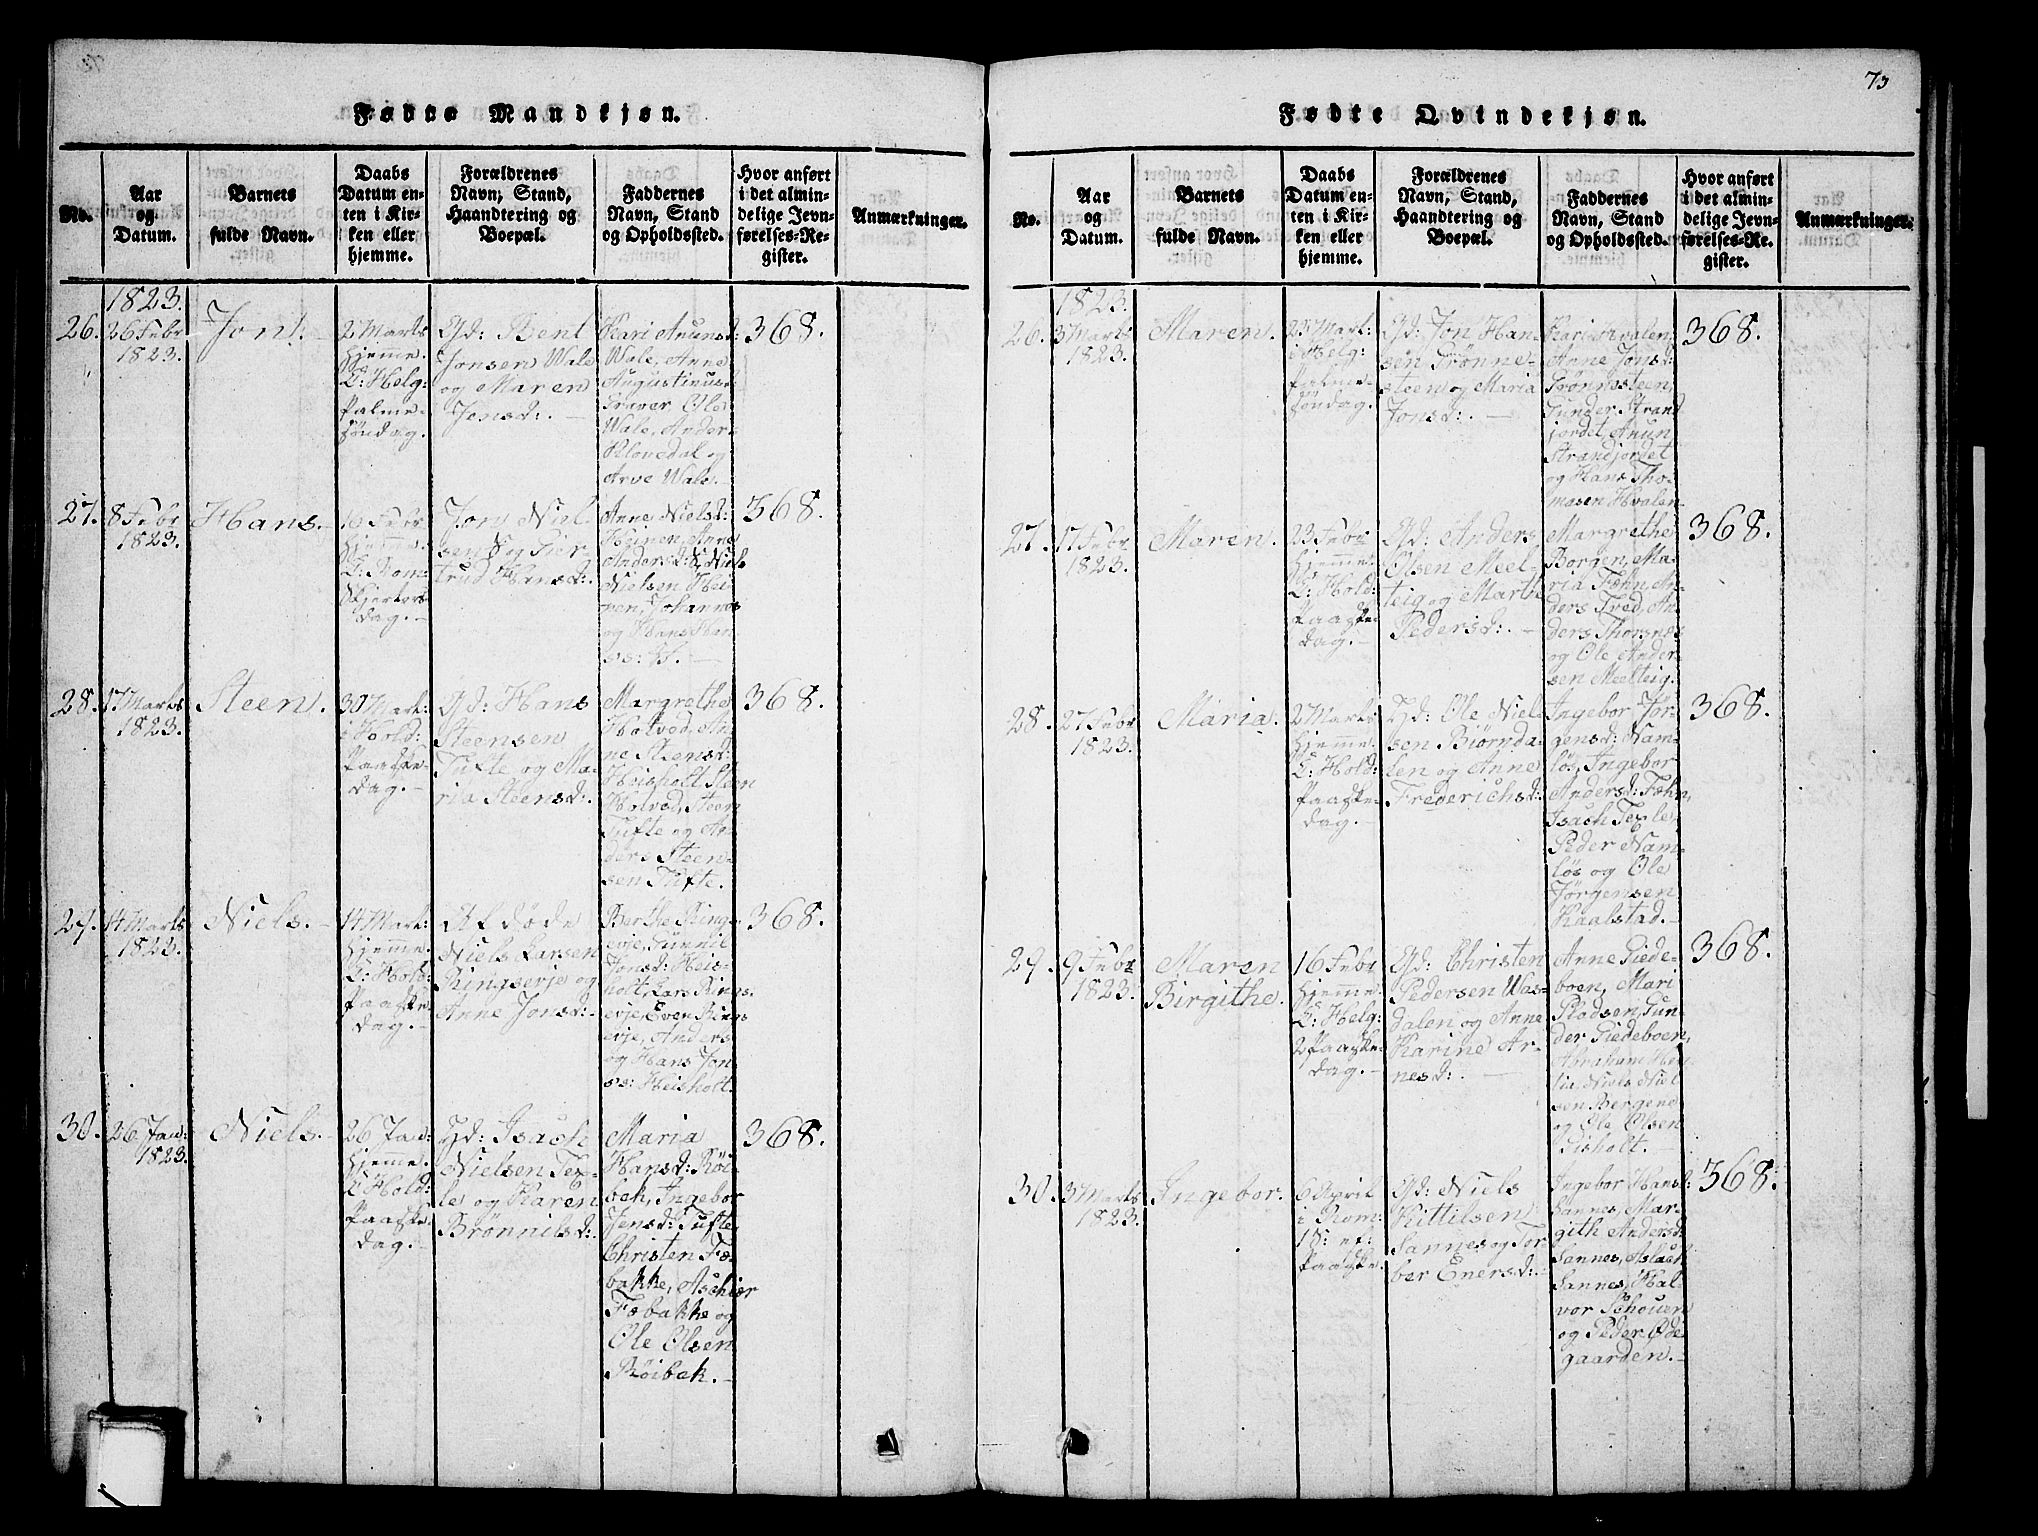 73
Fødte Mandkjøn.
No.
Aar
og
Datum.
Barnets
fulde Navn.
Daabs
Datum en-
ten i Kir-
ken eller
hjemme.
Forældrenes
Navn, Stand,
Haandtering og
Boepæl.
Faddernes
Navn, Stand
og Opholdssted.
Hvor anført
i det almin-
delige Jevn-
førelses-Re-
gister.
Anmærkninger.
1823.
26.
26 Febr
1823.
Jon.
2 Marts
hjemme.
C: Helg:
Palme-
søndag.
Gd: Bent
Jonsen Wale
og Maren
Jonsd:.
Kari Anunsd:
Wale, Anne
Augustinus:
Traver, Ole
Wale, Ander
Klovedal og
Arve Wale.
368.
27.
8 Febr
1823.
Hans.
16 Febr
hjemme.
C: Rom:
Skjertors-
dag.
Jon Niel-
sen og Gier-
trud Hansd:.
Anne Nielsd:
Heinen, Anne
Andersd: Niels
Nielsen Hei-
nen, Johannes
og Hans Han-
368.
28.
17 Marts
1823.
Steen.
30 Mart:
i Hold:
Paaske-
dag.
Gd: Hans
Steensen
Tufte og Ma-
ria Steensd:.
Margrethe
Holved, An-
ne Steensd:
Heisholt Steen
Holved, Steen
Tufte og An-
ders Steen-
sen Tufte.
368.
29.
14 Marts
1823.
Niels.
14 Mart:
hjemme.
C: Hold:
Paaske-
dag.
Af døde
Niels Larsen
Ringserje og
Anne Jonsd:.
Berthe Rings-
erje, Gunnil
Jonsd: Heis-
holt, Lars Rings-
erje, Even Rings
erje, Anders
og Hans Jon
ss: Heisholt.
368.
30.
26 Jan:
1823.
Niels.
26 Jan:
hjemme.
C: Hold:
Paaske-
dag.
Gd: Isach
Nielsen Tex-
le og Karen
Brønnilsd:.
Maria
Hansd: Röi-
bek, Ingebor
Jensd: Tufte
Christen Fæ-
bakke, Aschier
Fæbakke og
Ole Olsen
Röibek.
368.
Fødte Qvindekjøn.
No.
Aar
og
Datum.
Barnets
fulde Navn.
Daabs
Datum en-
ten i Kir-
ken eller
hjemme.
Forældrenes
Navn, Stand,
Haandtering og
Boepæl.
Faddernes
Navn, Stand
og Opholdssted.
Hvor anført
i det almin-
delige Jevn-
førelses-Re-
gister.
Anmærkninger.
1823.
26.
3 Marts
1823.
Maren.
23 Mart:
i Helg:
Palme-
søndag.
Gd: Jon Han-
sen Trønne-
steen og Maria
Jonsd:.
Kari Hvalen,
Anne Jonsd:
Trønnesteen,
Gunder Strand
jordet, Anun
Strandjordet
og Hans Tho-
masen Hvalen.
368.
27.
17 Febr
1823.
Maren.
23 Febr
hjemme.
C: Hold:
Paaske-
dag.
Gd: Anders
Olsen Meel-
teig og Marthe
Pedersd:.
Margrethe
Borgen, Ma-
ria Fæhn, An-
ders Tred, An-
ders Thorsnes
og Ole Ander-
sen Meelteig.
368.
28.
27 Febr
1823.
Maria.
2 Marts
hjemme.
C: Hold:
Paaske-
dag.
Gd: Ole Niel-
sen Biørnda-
len og Anne
Frederichsd:.
Ingebor Jör-
gensd: Nam-
lös, Ingebor
Andersd: Fæhn,
Isach Texle,
Peder Nam-
lös og Ole
Jörgensen
Kaalstad.
368.
29.
9 Febr
1823.
Maren
Birgithe.
16 Febr
hjemme.
C: Helg:
2 Paaske-
dag.
Gd: Christen
Pedersen Was-
dalen og Anne
Karine Ar-
nesd:.
Anne Giede-
boen, Mari
Plodsen, Gun-
der Giedeboen,
Niels Niel-
sen Bergene
og Ole Olsen
Lisholt.
368.
30.
3 Marts
1823.
Ingebor.
6 April
i Rom:
1S: ef:
Paaske.
Gd: Niels
Kittilsen
Sannes og Tor-
ber Enersd:.
Ingebor Hansd:
Sannes, Mar-
gith Andersd:
Sannes, Aslach
Sannes, Hal-
vor Schouen
og Peder Øde-
gaarden.
368.